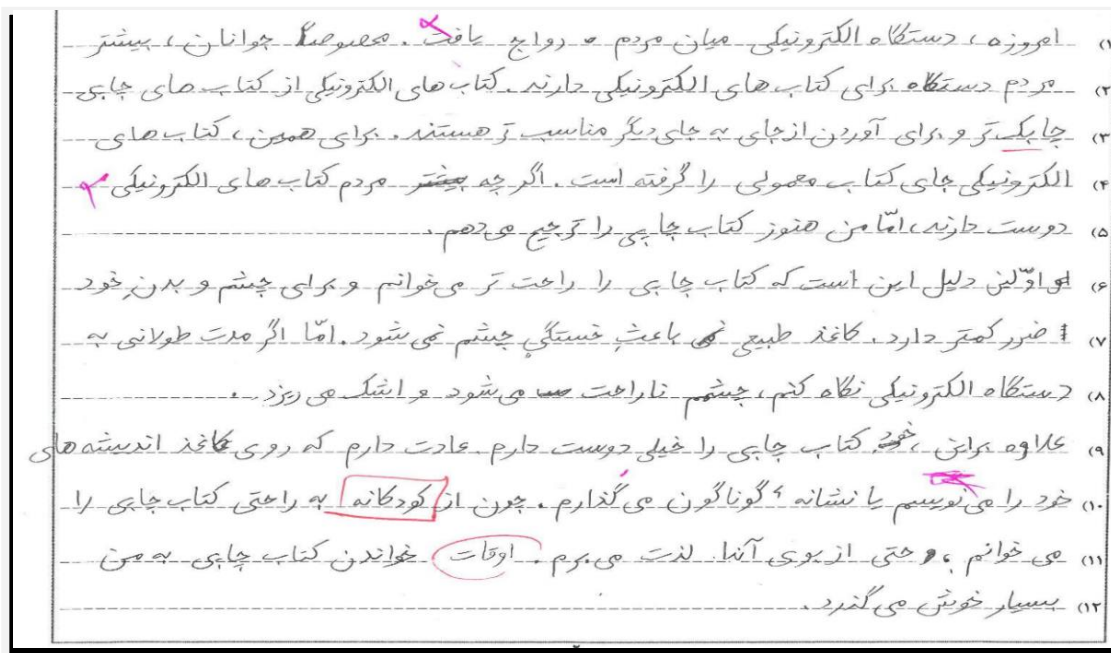 ۱) امروزه، دستگاه الکترونیکی میان مردم رواج یافت. مخصوصاً جوانان، بیشتر
۲) مردم دستگاه برای کتاب های الکترونیکی دارند. کتاب های الکترونیکی از کتاب های چاپی
۳) چابک تر و برای آوردن از جای به جای دیگر مناسب تر هستند. برای همین، کتاب های
۴) الکترونیکی جای کتاب معمولی را گرفته است. اگر چه بیشتر مردم کتاب های الکترونیکی
۵) دوست دارند، امّا من هنوز کتاب چاپی را ترجیح می دهم.
۶) اوّلین دلیل این است که کتاب چاپی را راحت تر می خوانم و برای چشم و بدنِ خود
۷) ضرر کمتر دارد. کاغذ طبیعی باعثِ خستگیِ چشم نمی شود. امّا اگر مدت طولانی به
۸) دستگاه الکترونیکی نگاه کنم، چشمم ناراحت می شود و اشک می ریزد.
۹) علاوه براین، کتاب چاپی را خیلی دوست دارم. عادت دارم که روی کاغذ اندیشه های
۱۰) خود را می نویسم یا نشانه گوناگون می گذارم. چون از کودکانه به راحتی کتاب چاپی را
۱۱) می خوانم، و حتی از بوی آنها لذت می برم. اوقات خواندن کتاب چاپی به من
۱۲) بسیار خوش می گذرد.